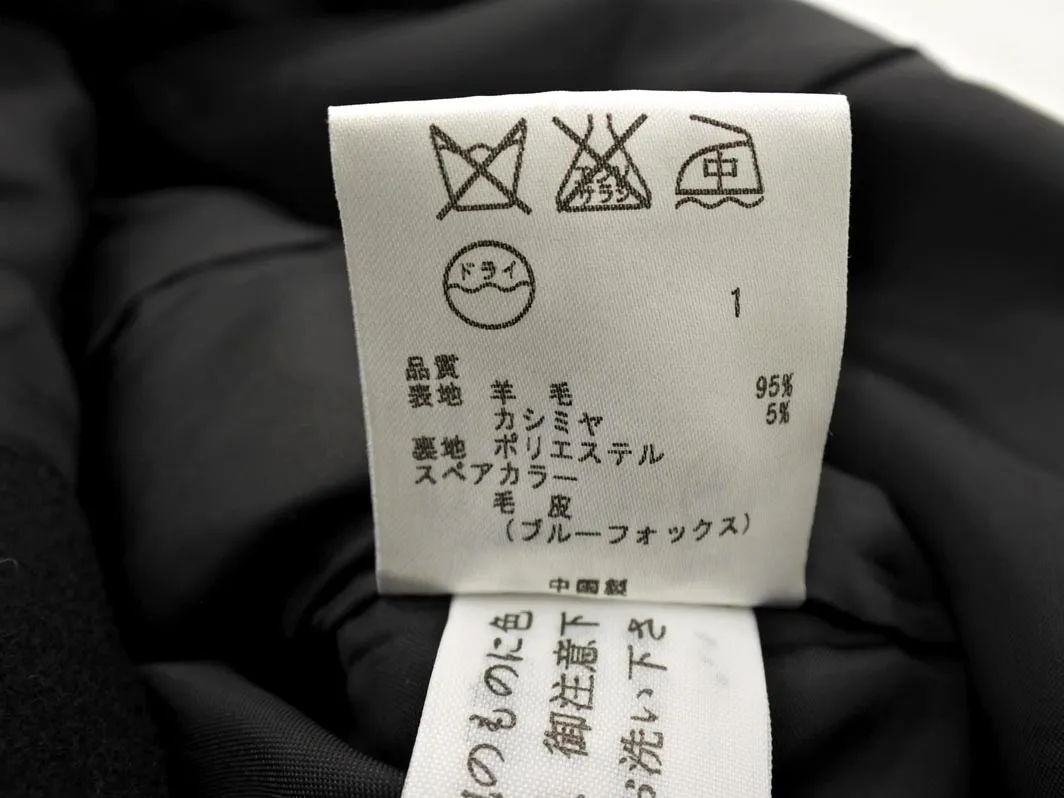 エンソ
サラシ
中
ドライ
1
品質
表地 羊 毛 95%
カシミヤ 5%
裏地 ポリエステル
スペアカラー
毛 皮
(ブルーフォックス)
中国製
のものに色
御注意下
お洗い下さ